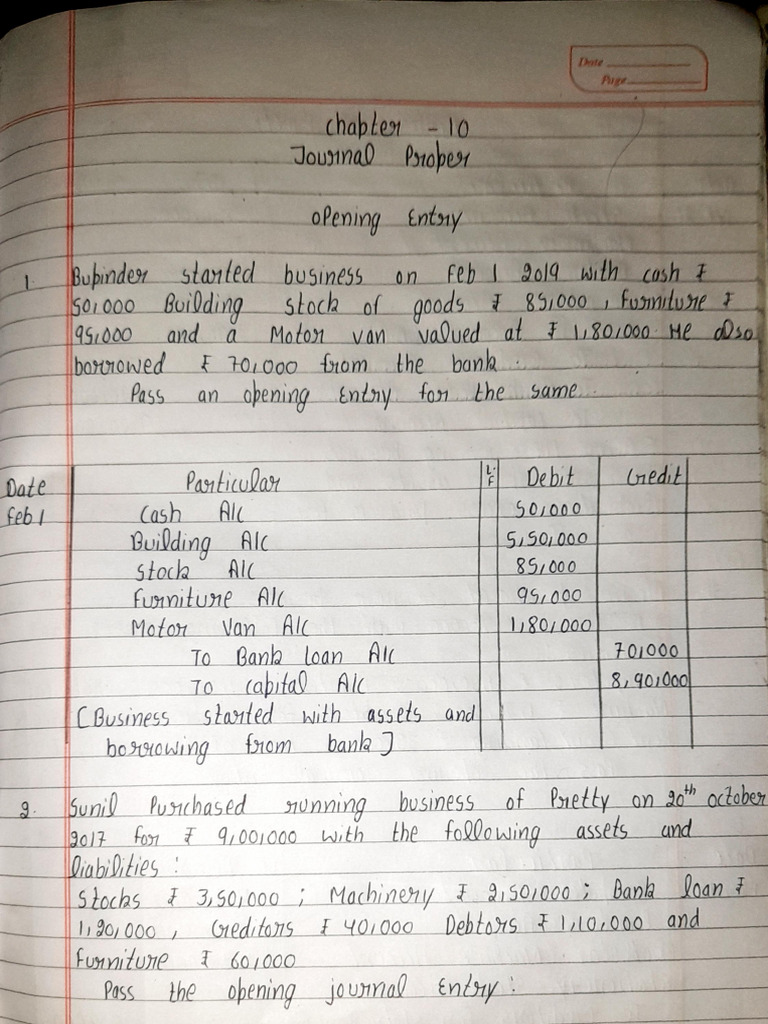 Date
Page
Chapter - 10
Journal Proper
Opening Entry
1. Bupinder started business on Feb 1 2019 with cash ₹
50,000 Building stock of goods ₹ 85,000, Furniture ₹
95,000 and a Motor van valued at ₹ 1,80,000. He also
borrowed ₹ 70,000 from the bank.
Pass an opening Entry for the same.
Date Particular L.F Debit Credit
Feb 1 Cash A/c 50,000
Building A/c 5,50,000
Stock A/c 85,000
Furniture A/c 95,000
Motor Van A/c 1,80,000
To Bank loan A/c 70,000
To capital A/c 8,90,000
[Business started with assets and
borrowing from bank]
2. Sunil Purchased running business of Pretty on 20th october
2017 for ₹ 9,00,000 with the following assets and
liabilities :
Stocks ₹ 3,50,000 ; Machinery ₹ 2,50,000 ; Bank loan ₹
1,20,000, Creditors ₹ 40,000 Debtors ₹ 1,10,000 and
Furniture ₹ 60,000
Pass the opening journal Entry :